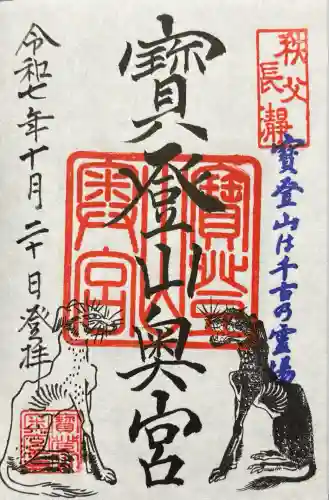 秩父
長瀞
寳登山は千古の霊場
寳登山奥宮
令和七年十月二十日登拝
寳登山
奥宮
寳登山
奥宮